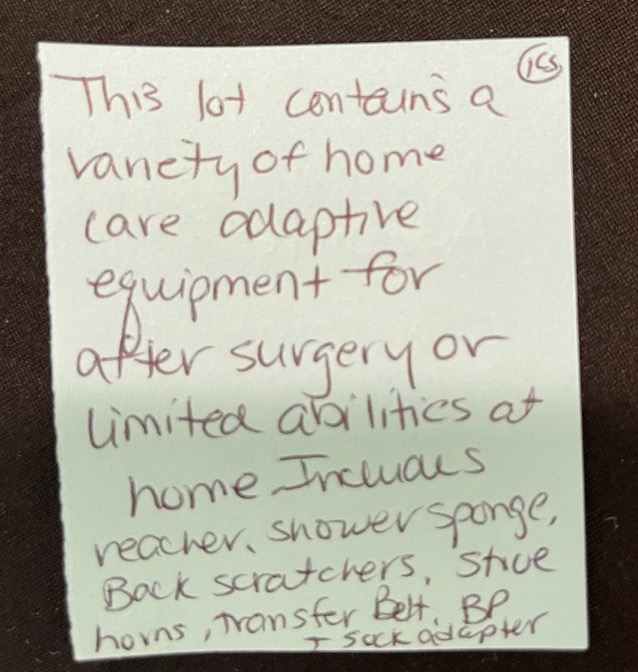 This lot contains a
variety of home
care adaptive
equipment for
after surgery or
limited abilities at
home. Includes
reacher, shower sponge,
Back scratchers, Shoe
horns, transfer Belt, BP
+ sock adapter